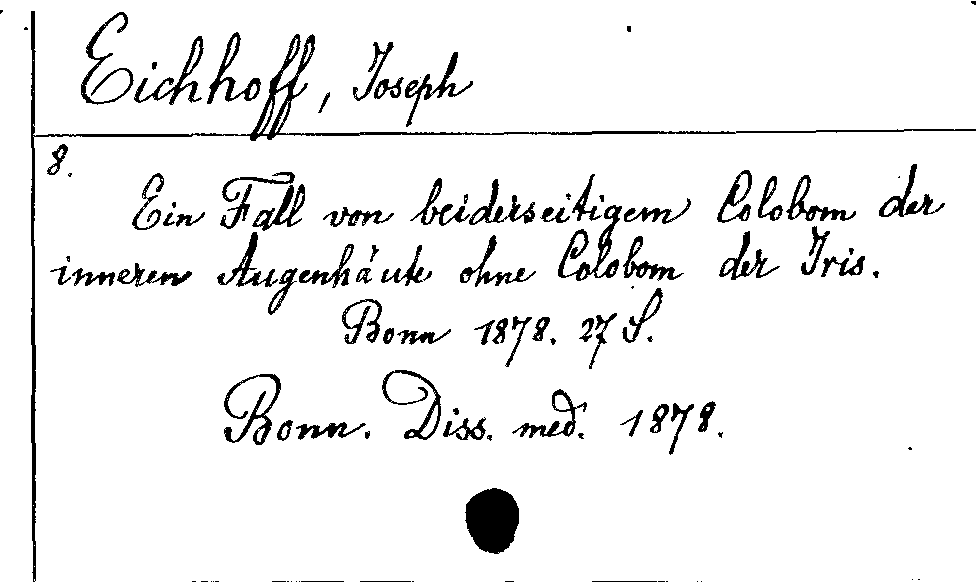 Eichhoff, Joseph
8.
Ein Fall von beiderseitigem Colobom der
inneren Augenhäute ohne Colobom der Iris.
Bonn 1878. 27 S.
Bonn. Diss. med. 1878.